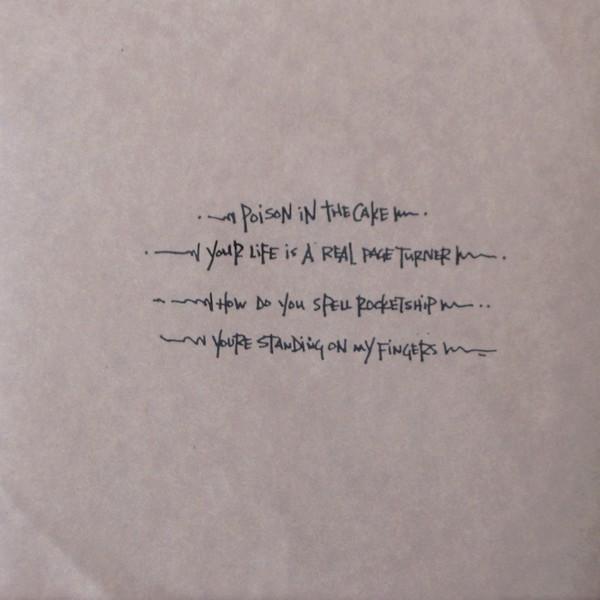 POISON IN THE CAKE
YOUR LIFE IS A REAL PAGE TURNER
HOW DO YOU SPELL ROCKETSHIP
YOU'RE STANDING ON MY FINGERS